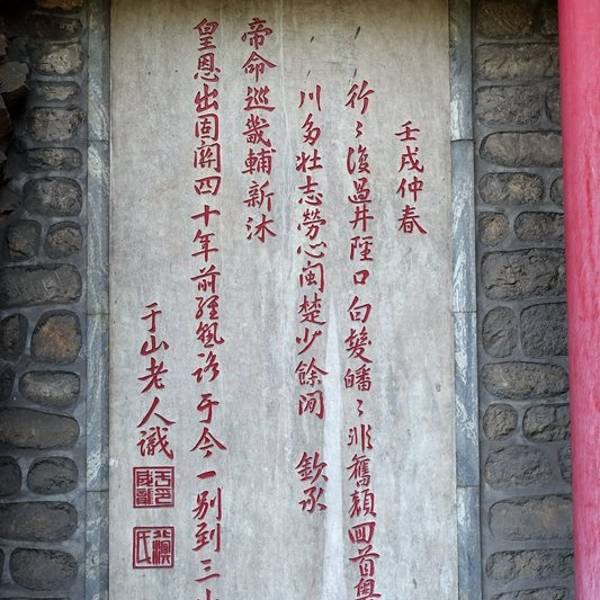 壬戌仲春
行々復過井陘口白髮皤々非舊顏回首粵
川多壯志勞心閩楚少餘閒 欽承
帝命巡畿輔新沐
皇恩出固關四十年前經熟路于今一別到三
于山老人識